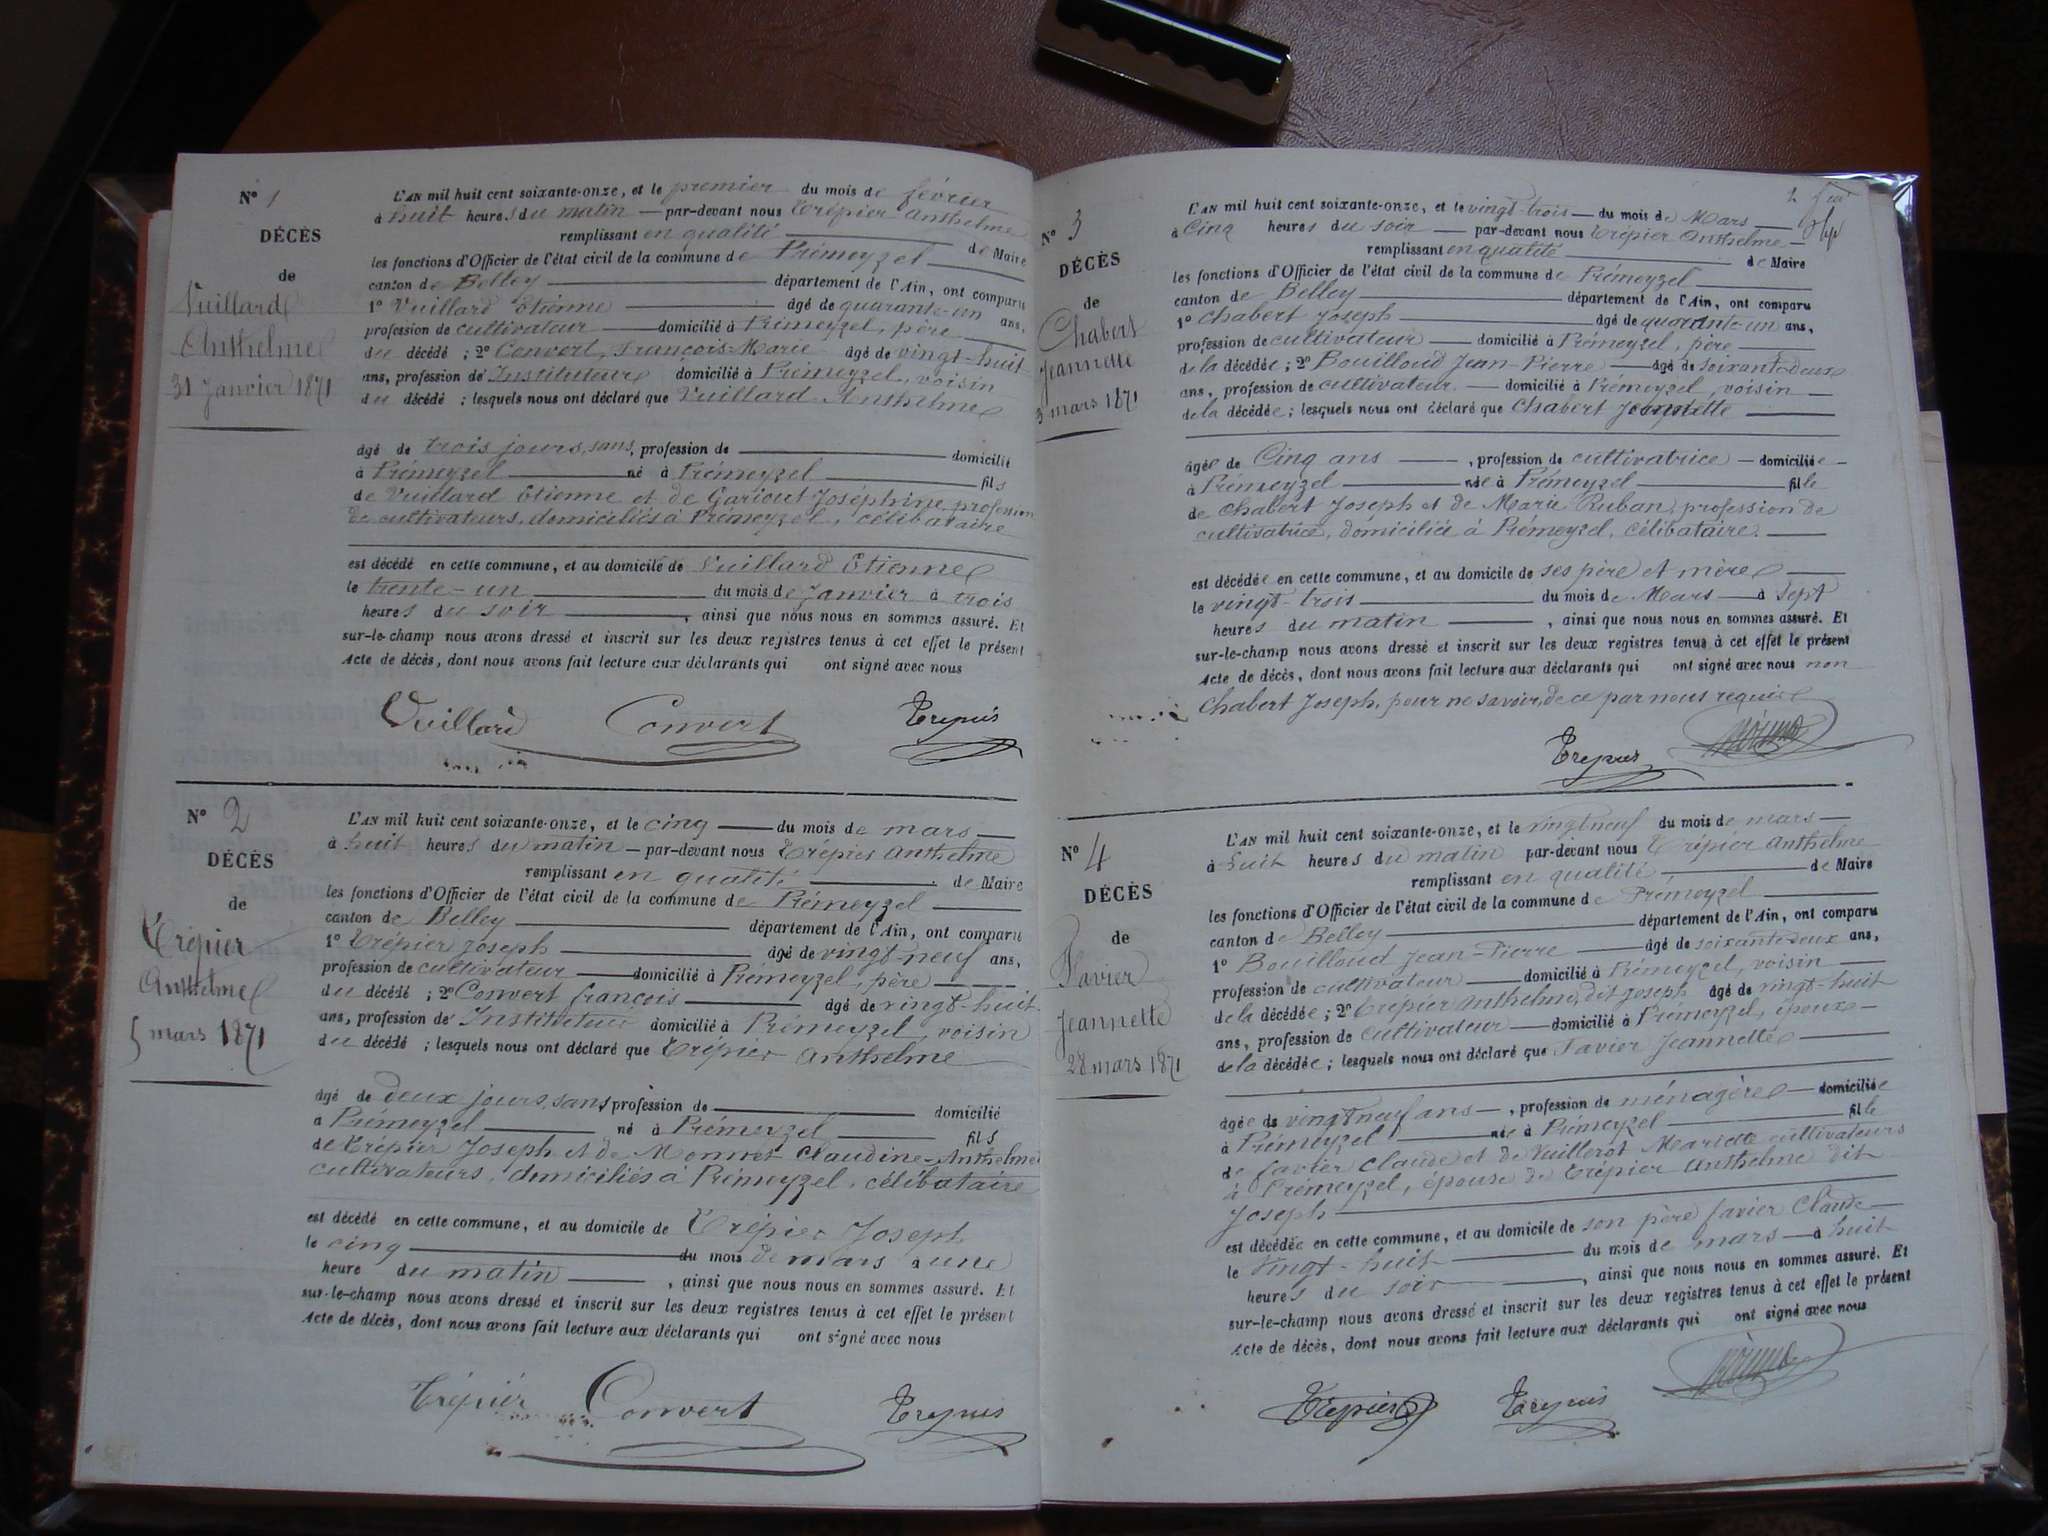 N° 1
DÉCÈS
de
Vuillard
Anthelme
31 Janvier 1871
L'AN mil huit cent soixante-onze, et le premier du mois de février
à huit heures du matin par-devant nous Trépier Anthelme
remplissant en qualité de Maire
les fonctions d'Officier de l'état civil de la commune de Prémeyzel
canton de Belley département de l'Ain, ont comparu
1° Vuillard Etienne âgé de quarante-un ans,
profession de cultivateur domicilié à Prémeyzel, père
du décédé ; 2° Convert, François-Marie âgé de vingt-huit
ans, profession de Instituteur domicilié à Prémeyzel, voisin
du décédé ; lesquels nous ont déclaré que Vuillard Anthelme
âgé de trois jours, sans, profession de domicilié
à Prémeyzel né à Prémeyzel fils
de Vuillard Etienne et de Joséphine profession
de cultivateurs, domiciliés à Prémeyzel, célibataire
est décédé en cette commune, et au domicile de Vuillard Etienne
le trente-un du mois de Janvier à trois
heures du soir , ainsi que nous nous en sommes assuré. Et
sur-le-champ nous avons dressé et inscrit sur les deux registres tenus à cet effet le présent
Acte de décès, dont nous avons fait lecture aux déclarants qui ont signé avec nous
Vuillard Convert Trepier
N° 2
DÉCÈS
de
Trépier
Anthelme
5 mars 1871
L'AN mil huit cent soixante-onze, et le cinq du mois de mars
à huit heures du matin par-devant nous Trépier Anthelme
remplissant en qualité de Maire
les fonctions d'Officier de l'état civil de la commune de Prémeyzel
canton de Belley département de l'Ain, ont comparu
1° Trépier Joseph âgé de vingt-neuf ans,
profession de cultivateur domicilié à Prémeyzel, père
du décédé ; 2° Convert françois âgé de vingt-huit
ans, profession de Instituteur domicilié à Prémeyzel, voisin
du décédé ; lesquels nous ont déclaré que Trépier Anthelme
âgé de deux jours, sans, profession de domicilié
à Prémeyzel né à Prémeyzel fils
de Trépier Joseph et de Monnet Claudine-Anthelme
cultivateurs, domiciliés à Prémeyzel, célibataire
est décédé en cette commune, et au domicile de Trépier Joseph
le cinq du mois de mars à une
heure du matin , ainsi que nous nous en sommes assuré. Et
sur-le-champ nous avons dressé et inscrit sur les deux registres tenus à cet effet le présent
Acte de décès, dont nous avons fait lecture aux déclarants qui ont signé avec nous
Trépier Convert Trepier
2
N° 3
DÉCÈS
de
Chabert
Jeannette
3 mars 1871
L'AN mil huit cent soixante-onze, et le vingt-trois du mois de Mars
à Cinq heures du soir par-devant nous Trépier Anthelme
remplissant en qualité de Maire
les fonctions d'Officier de l'état civil de la commune de Prémeyzel
canton de Belley département de l'Ain, ont comparu
1° Chabert Joseph âgé de quarante-un ans,
profession de cultivateur domicilié à Prémeyzel, père
de la décédée ; 2° Bouilloud Jean-Pierre âgé de soixante-deux
ans, profession de cultivateur domicilié à Prémeyzel, voisin
de la décédée ; lesquels nous ont déclaré que Chabert Jeannette
âgée de Cinq ans , profession de cultivatrice domiciliée
à Prémeyzel née à Prémeyzel fille
de Chabert Joseph et de Marie Ruban, profession de
cultivatrice, domiciliée à Prémeyzel, célibataire.
est décédée en cette commune, et au domicile de ses père et mère
le vingt-trois du mois de Mars à sept
heures du matin , ainsi que nous nous en sommes assuré. Et
sur-le-champ nous avons dressé et inscrit sur les deux registres tenus à cet effet le présent
Acte de décès, dont nous avons fait lecture aux déclarants qui ont signé avec nous non
Chabert Joseph, pour ne savoir, de ce par nous requis
Trepier
N° 4
DÉCÈS
de
Favier
Jeannette
28 mars 1871
L'AN mil huit cent soixante-onze, et le vingt neuf du mois de mars
à huit heures du matin par-devant nous Trépier Anthelme
remplissant en qualité de Maire
les fonctions d'Officier de l'état civil de la commune de Prémeyzel
canton de Belley département de l'Ain, ont comparu
1° Bouilloud Jean-Pierre âgé de soixante-deux ans,
profession de cultivateur domicilié à Prémeyzel, voisin
de la décédée ; 2° Trépier Anthelme, dit Joseph âgé de vingt-huit
ans, profession de cultivateur domicilié à Prémeyzel, époux
de la décédée ; lesquels nous ont déclaré que Favier Jeannette
âgée de vingt neuf ans , profession de ménagère domiciliée
à Prémeyzel née à Prémeyzel fille
de favier Claude et de Vuillerot Mariette cultivateurs
à Prémeyzel, épouse de Trépier Anthelme dit
Joseph
est décédée en cette commune, et au domicile de son père favier Claude
le Vingt-huit du mois de mars à huit
heures du soir , ainsi que nous nous en sommes assuré. Et
sur-le-champ nous avons dressé et inscrit sur les deux registres tenus à cet effet le présent
Acte de décès, dont nous avons fait lecture aux déclarants qui ont signé avec nous
Trépier Trepier